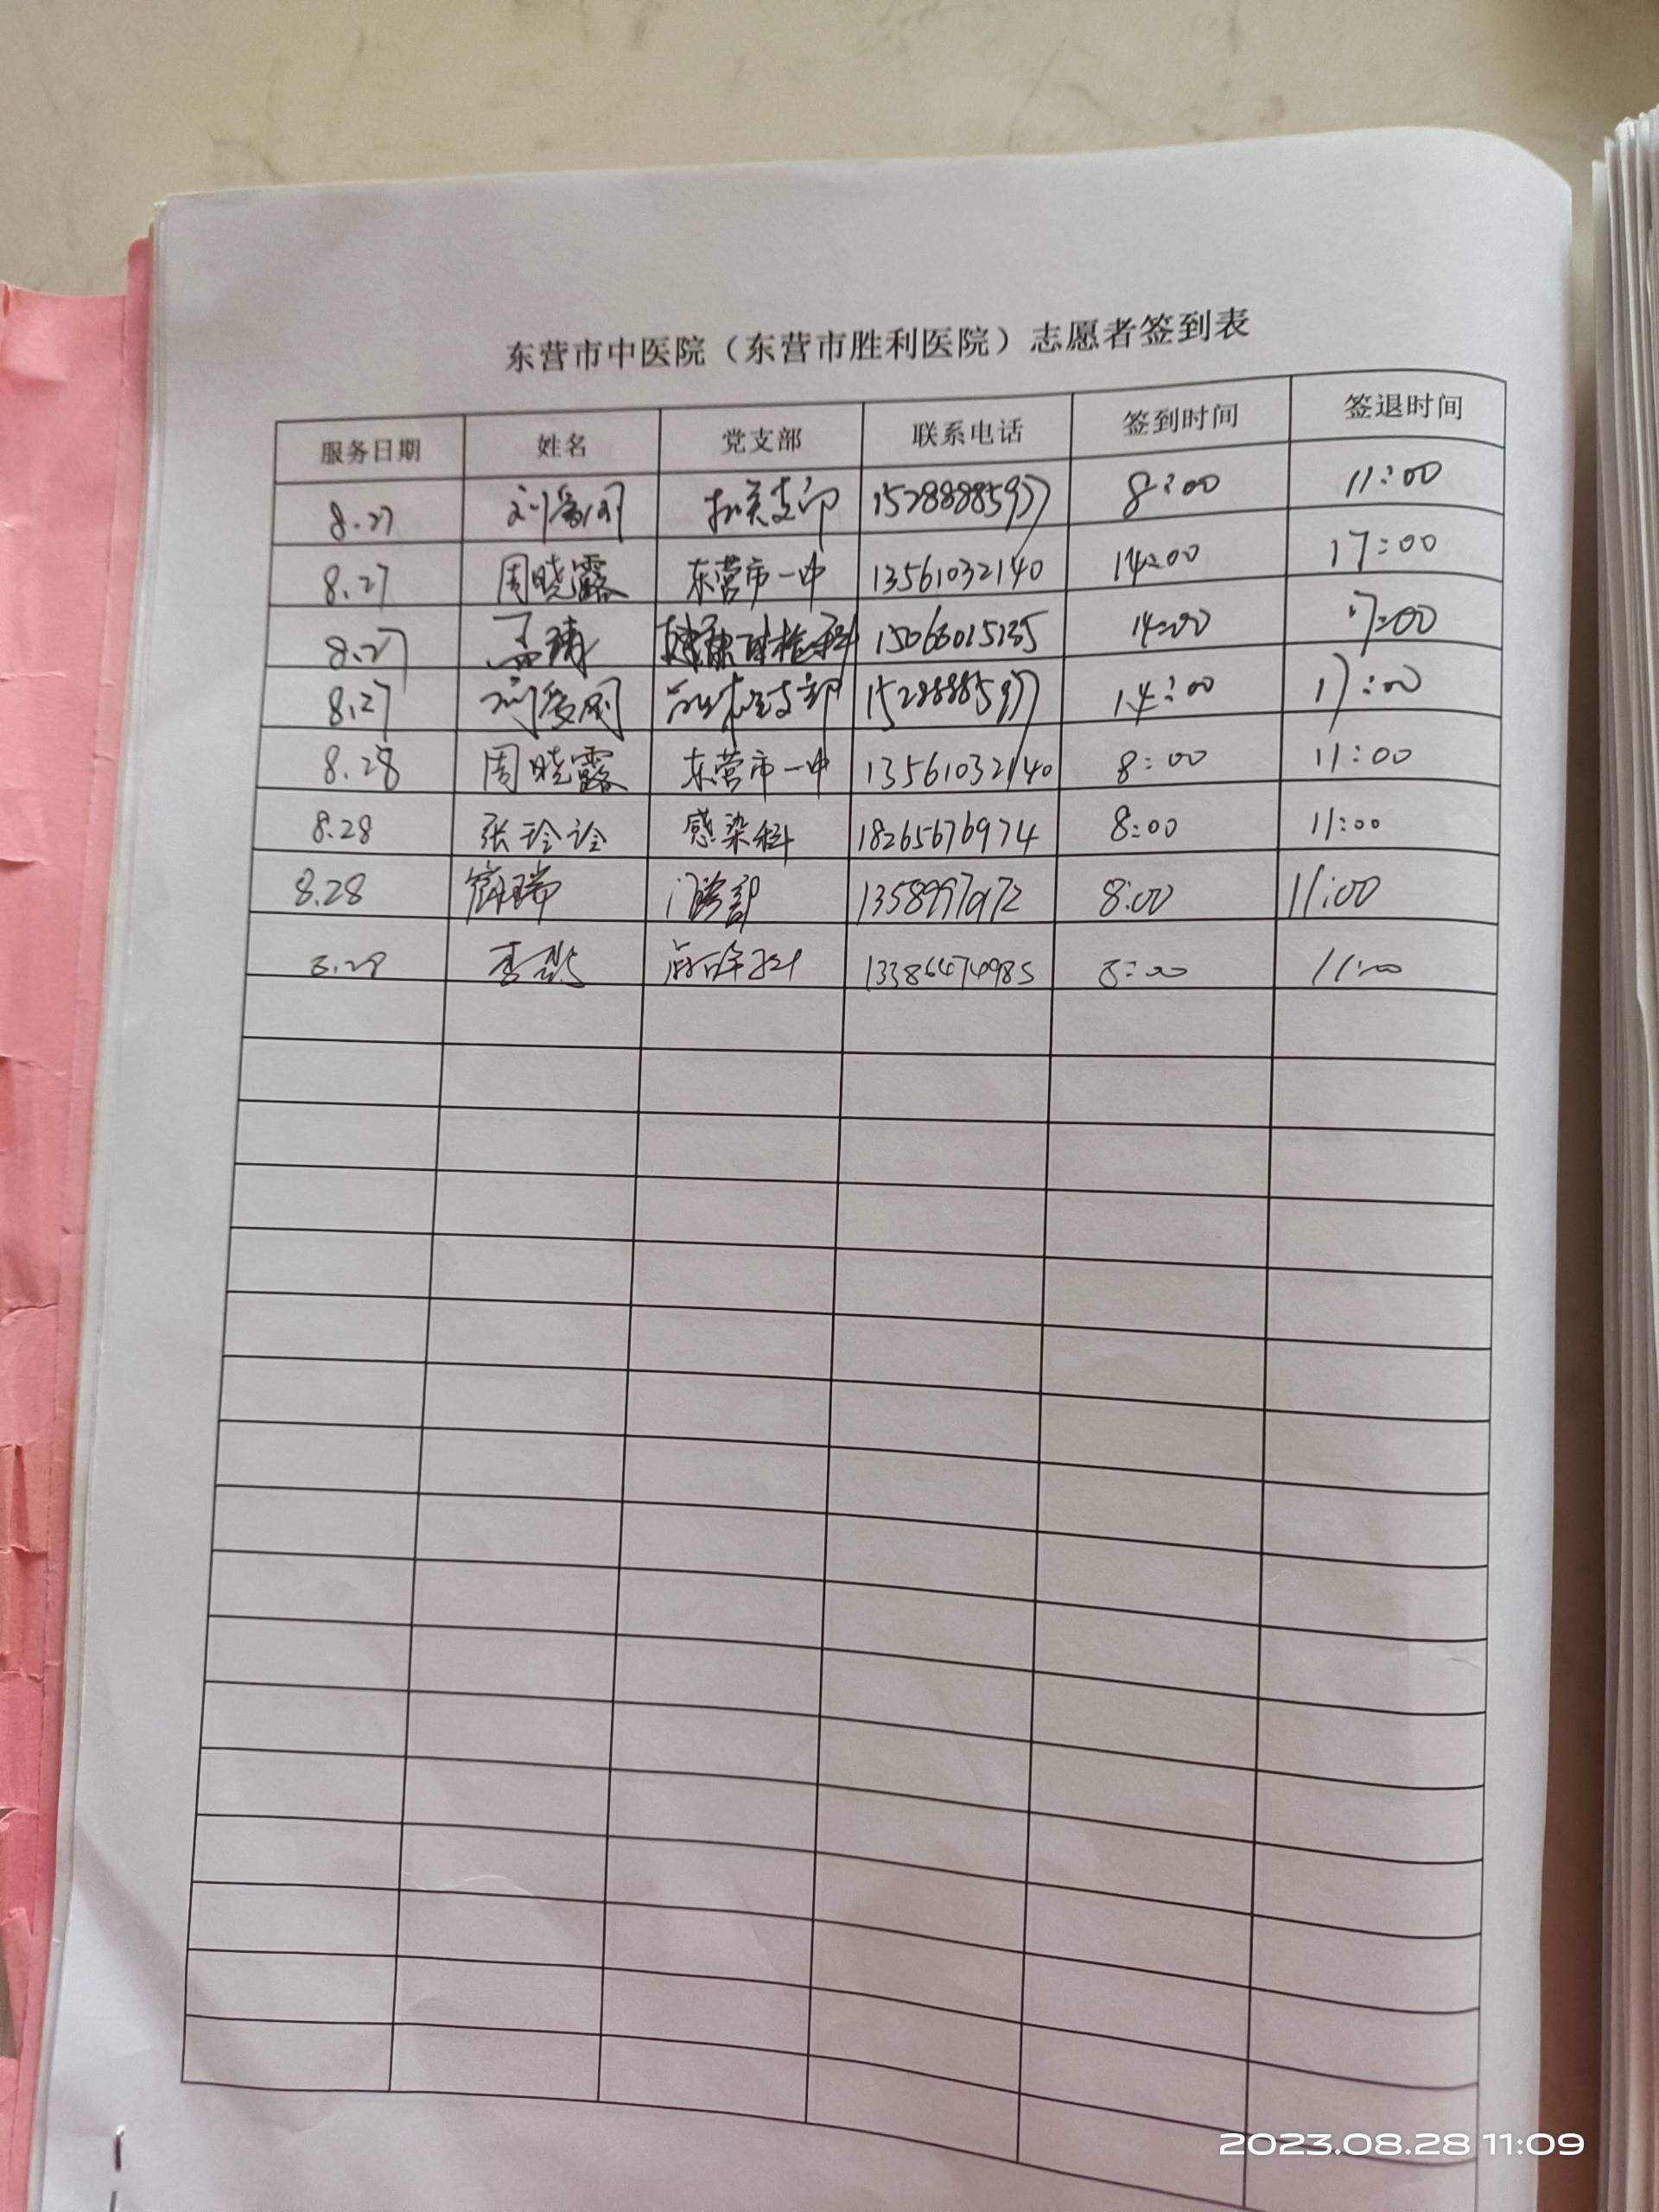 东营市中医院（东营市胜利医院）志愿者签到表
服务日期 姓名 党支部 联系电话 签到时间 签退时间
8.27 支部 15288885977 8:00 11:00
8.27 周晓露 东营市一中 13561032140 14:00 17:00
8.27 孟 健康体检科 14:00 17:00
8.27 支部 15288885977 14:00 17:00
8.28 周晓露 东营市一中 13561032140 8:00 11:00
8.28 张玲玲 感染科 18265676974 8:00 11:00
8.28 8:00 11:00
8.28 李 13386474985 8:00 11:00
2023.08.28 11:09